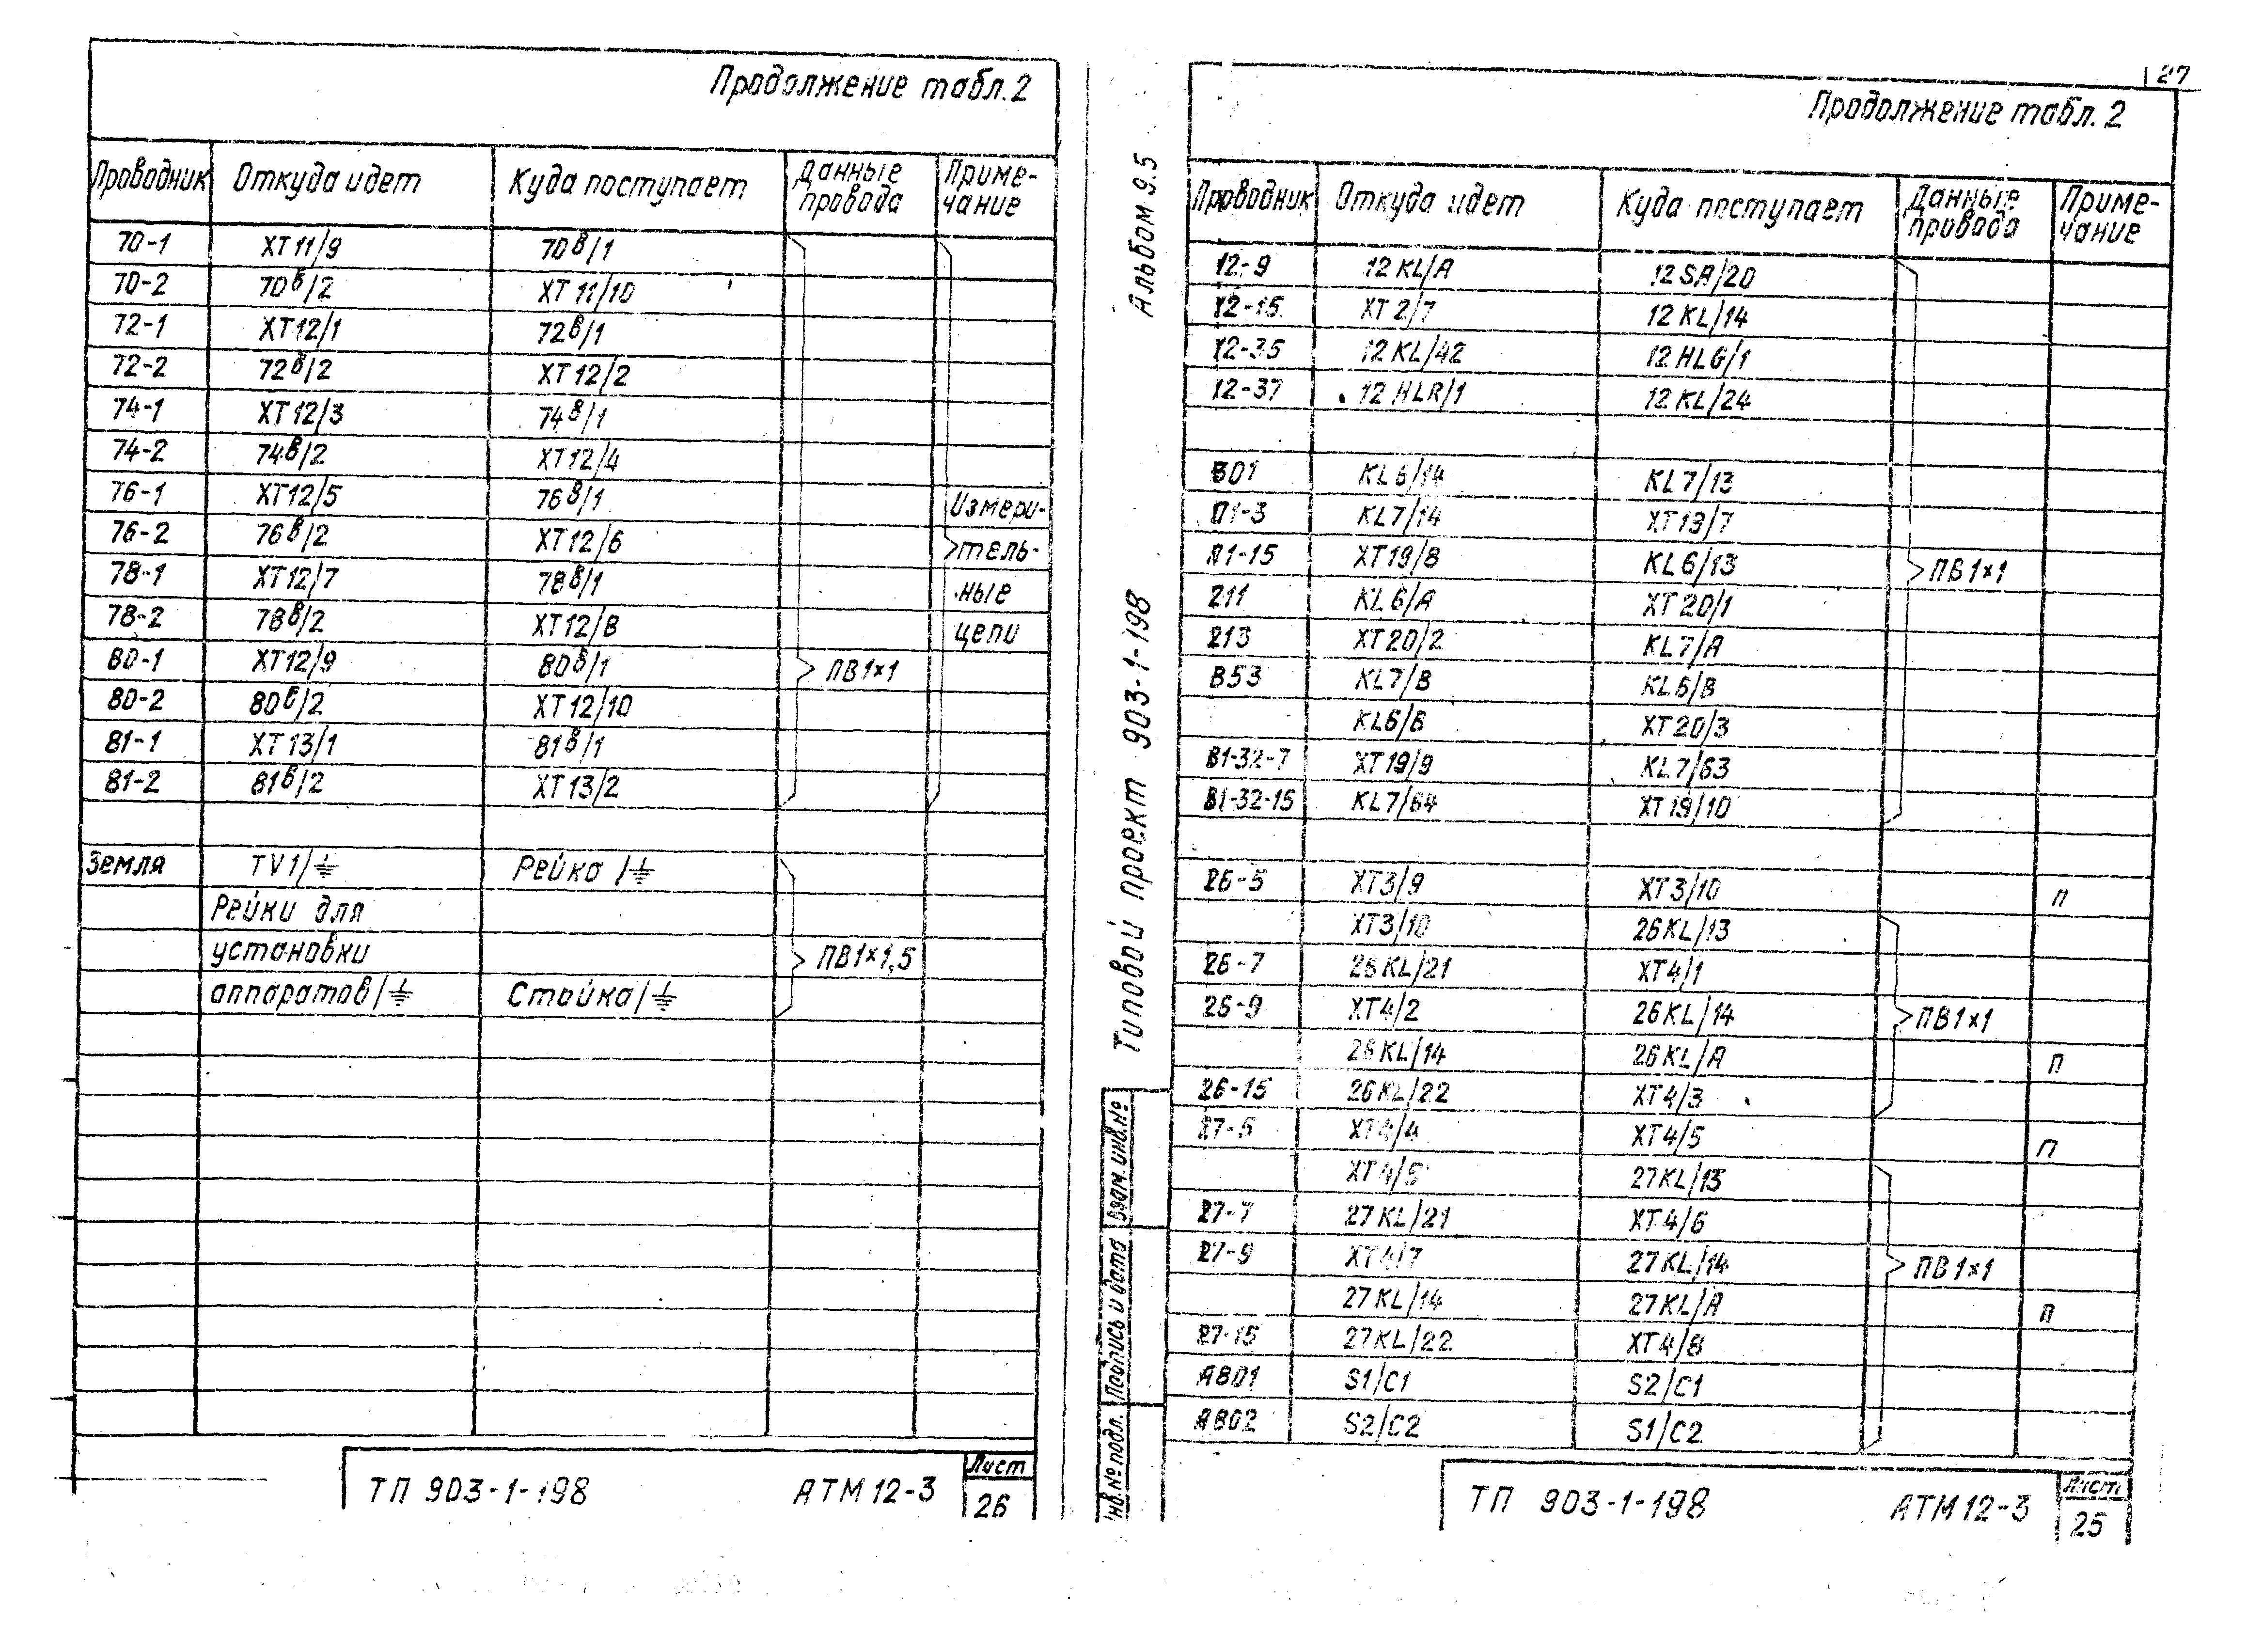 Продолжение табл.2
Проводник Откуда идет Куда поступает Данные провода Приме-чание
70-1 XT11/9 70в/1
70-2 70в/2 XT11/10
72-1 XT12/1 72в/1
72-2 72в/2 XT12/2
74-1 XT12/3 74в/1
74-2 74в/2 XT12/4
76-1 XT12/5 76в/1 Измери-
76-2 76в/2 XT12/6 тель-
78-1 XT12/7 78в/1 ные
78-2 78в/2 XT12/8 цепи
80-1 XT12/9 80в/1 ПВ1×1
80-2 80в/2 XT12/10
81-1 XT13/1 81в/1
81-2 81в/2 XT13/2
Земля TV1/⏚ Рейка /⏚
Рейки для
установки ПВ1×1,5
аппаратов/⏚ Стойка/⏚
ТП 903-1-198 АТМ12-3 Лист 26
Альбом 9.5
Типовой проект 903-1-198
Взам.инв.№
Подпись и дата
Инв.№ подл.
27
Продолжение табл.2
Проводник Откуда идет Куда поступает Данные провода Приме-чание
12-9 12KL/A 12SA/20
12-15 XT2/7 12KL/14
12-35 12KL/42 12HLG/1
12-37 12HLR/1 12KL/24
В01 KL6/14 KL7/13
П1-3 KL7/14 XT19/7
П1-15 XT19/8 KL6/13 ПВ1×1
211 KL6/A XT20/1
213 XT20/2 KL7/A
В53 KL7/B KL6/B
KL6/B XT20/3
В1-32-7 XT19/9 KL7/63
В1-32-15 KL7/64 XT19/10
26-5 XT3/9 XT3/10 п
XT3/10 26KL/13
26-7 26KL/21 XT4/1
26-9 XT4/2 26KL/14 ПВ1×1
26KL/14 26KL/A п
26-15 26KL/22 XT4/3
27-5 XT4/4 XT4/5 п
XT4/5 27KL/13
27-7 27KL/21 XT4/6
27-9 XT4/7 27KL/14 ПВ1×1
27KL/14 27KL/A п
27-15 27KL/22 XT4/8
А801 S1/C1 S2/C1
А802 S2/C2 S1/C2
ТП 903-1-198 АТМ12-3 Лист 25